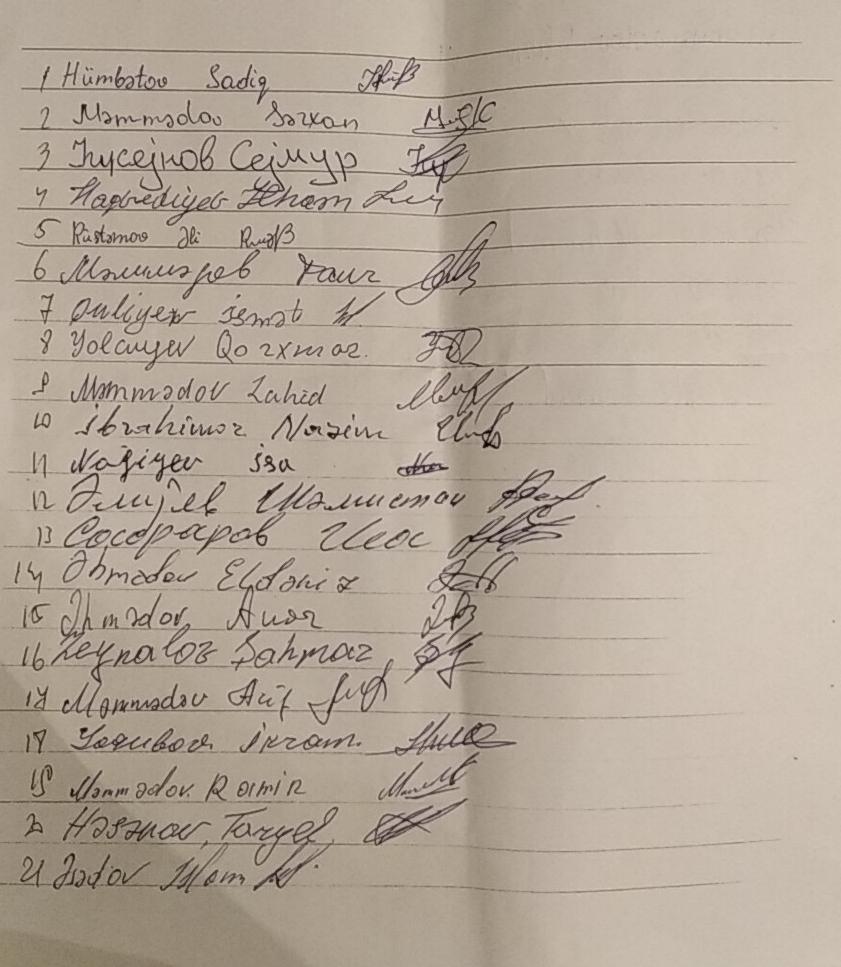 1 Hümbətov Sadiq
2 Məmmədov Sərxan
3 Һусејнов Сејмур
4 Haqverdiyev İlham
5 Rüstəmov Əli
6 Мәммәдов
7 Quliyev ismət
8 Yolçuyev Qorxmaz.
9 Məmmədov Zahid
10 ibrahimov Nazim
11 Nağiyev isa
12 Әлијев Шәмистан
13
14 Əhmədov Eldəniz
15 Əhmədov Anar
16 Zeynalov Şahmar
17 Məmmədov Arif
Yaqubov ikram.
Məmmədov. Ramin
20 Həsənov, Taryel,
21 Əsədov İslam